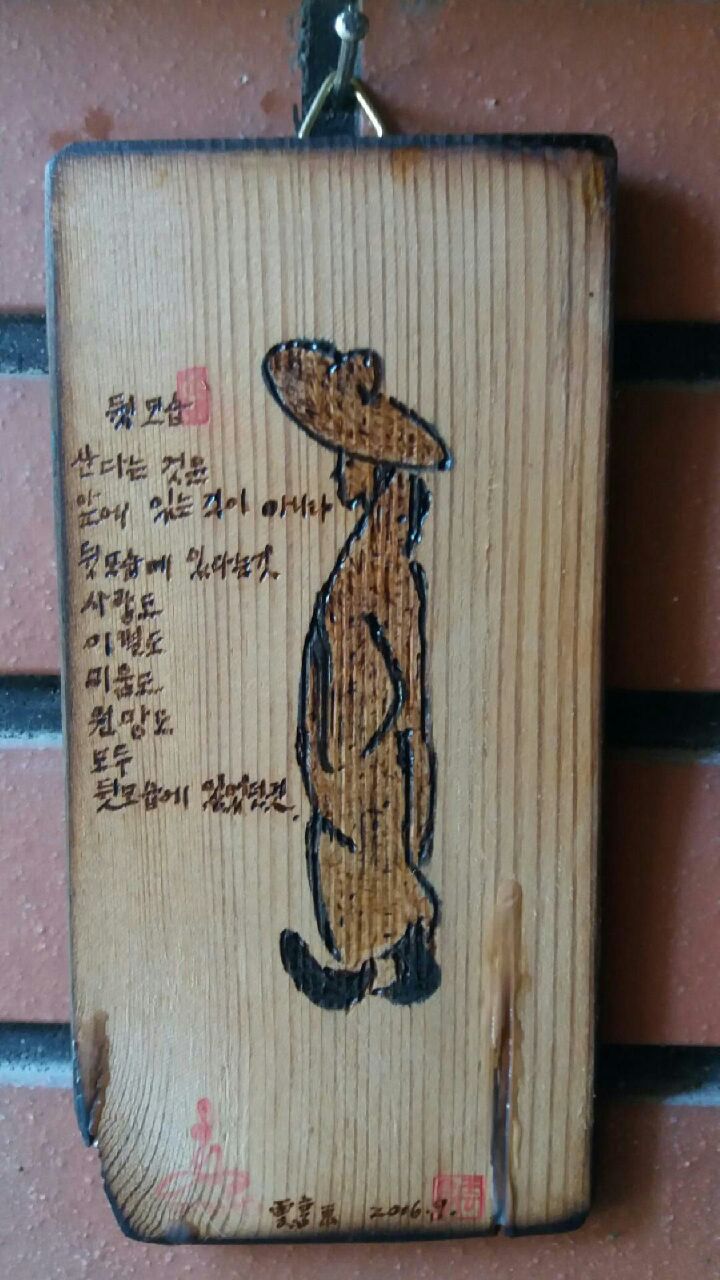 뒷모습
산다는 것은
앞에 있는 것이 아니라
뒷모습에 있다는것
사랑도
이별도
미움도
원망도
모두
뒷모습에 있었던것.
2006.9.